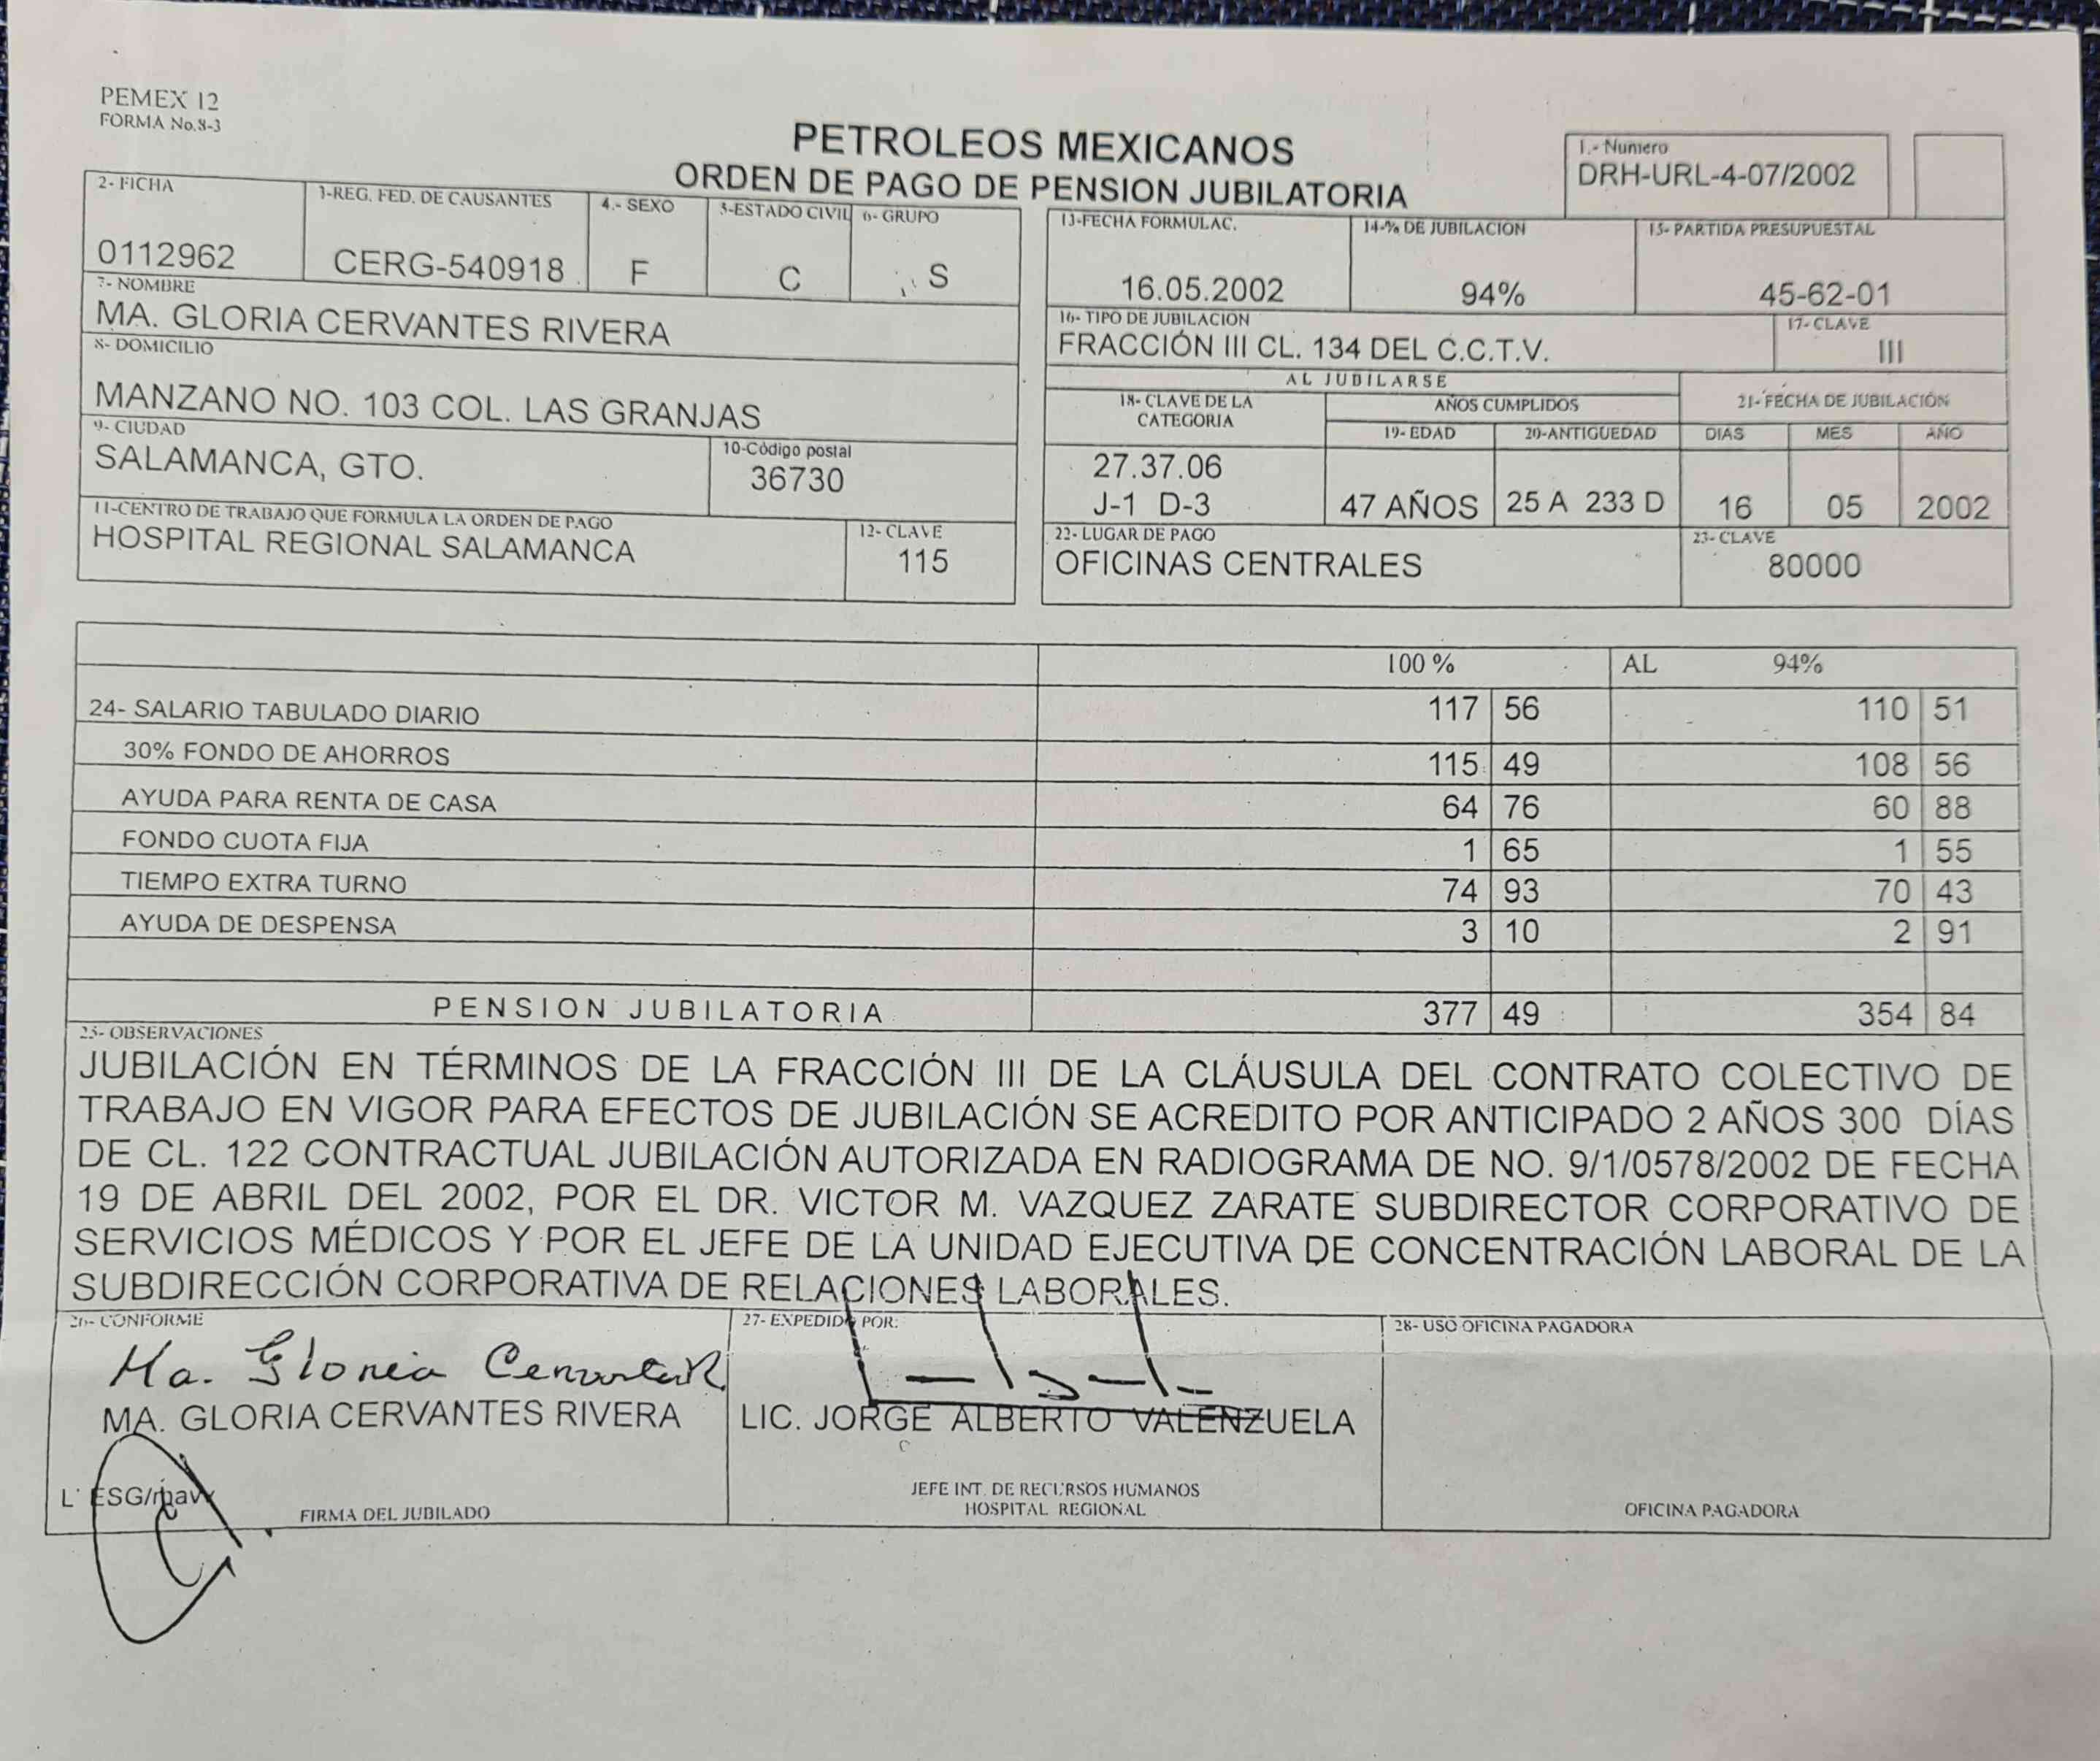 PEMEX 12
FORMA No.8-3
PETROLEOS MEXICANOS
ORDEN DE PAGO DE PENSION JUBILATORIA
1.- Numero
DRH-URL-4-07/2002
2- FICHA
0112962
3-REG. FED. DE CAUSANTES
CERG-540918
4.- SEXO
F
5-ESTADO CIVIL
C
6- GRUPO
S
7- NOMBRE
MA. GLORIA CERVANTES RIVERA
8- DOMICILIO
MANZANO NO. 103 COL. LAS GRANJAS
9- CIUDAD
SALAMANCA, GTO.
10-Código postal
36730
11-CENTRO DE TRABAJO QUE FORMULA LA ORDEN DE PAGO
HOSPITAL REGIONAL SALAMANCA
12- CLAVE
115
13-FECHA FORMULAC.
16.05.2002
14-% DE JUBILACION
94%
15- PARTIDA PRESUPUESTAL
45-62-01
16- TIPO DE JUBILACION
FRACCIÓN III CL. 134 DEL C.C.T.V.
17- CLAVE
III
AL JUBILARSE
18- CLAVE DE LA
CATEGORIA
27.37.06
J-1 D-3
AÑOS CUMPLIDOS
19- EDAD
47 AÑOS
20-ANTIGUEDAD
25 A 233 D
21- FECHA DE JUBILACIÓN
DIAS MES AÑO
16 05 2002
22- LUGAR DE PAGO
OFICINAS CENTRALES
23- CLAVE
80000
100 % AL 94%
24- SALARIO TABULADO DIARIO 117 56 110 51
30% FONDO DE AHORROS 115 49 108 56
AYUDA PARA RENTA DE CASA 64 76 60 88
FONDO CUOTA FIJA 1 65 1 55
TIEMPO EXTRA TURNO 74 93 70 43
AYUDA DE DESPENSA 3 10 2 91
PENSION JUBILATORIA 377 49 354 84
25- OBSERVACIONES
JUBILACIÓN EN TÉRMINOS DE LA FRACCIÓN III DE LA CLÁUSULA DEL CONTRATO COLECTIVO DE
TRABAJO EN VIGOR PARA EFECTOS DE JUBILACIÓN SE ACREDITO POR ANTICIPADO 2 AÑOS 300 DÍAS
DE CL. 122 CONTRACTUAL JUBILACIÓN AUTORIZADA EN RADIOGRAMA DE NO. 9/1/0578/2002 DE FECHA
19 DE ABRIL DEL 2002, POR EL DR. VICTOR M. VAZQUEZ ZARATE SUBDIRECTOR CORPORATIVO DE
SERVICIOS MÉDICOS Y POR EL JEFE DE LA UNIDAD EJECUTIVA DE CONCENTRACIÓN LABORAL DE LA
SUBDIRECCIÓN CORPORATIVA DE RELACIONES LABORALES.
26- CONFORME
Ma. Gloria Cervantes R.
MA. GLORIA CERVANTES RIVERA
L' ESG/mavv
FIRMA DEL JUBILADO
27- EXPEDIDO POR:
LIC. JORGE ALBERTO VALENZUELA
JEFE INT. DE RECURSOS HUMANOS
HOSPITAL REGIONAL
28- USO OFICINA PAGADORA
OFICINA PAGADORA